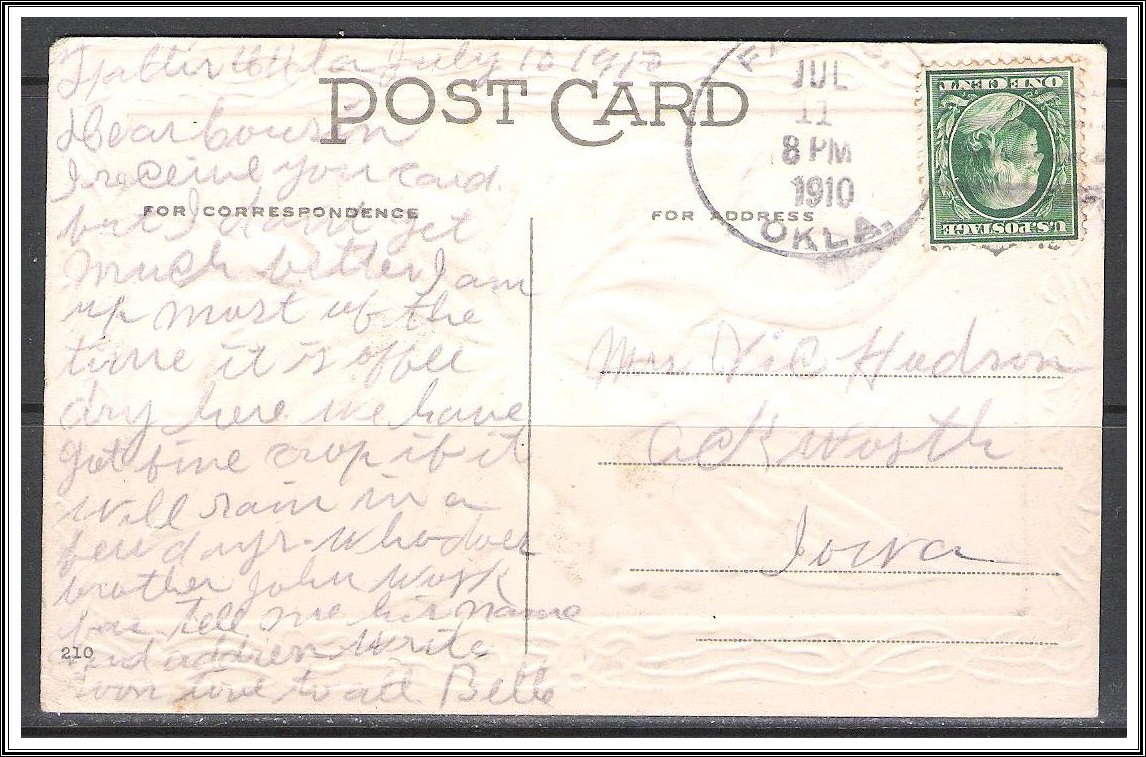 Okla July 10 1910
POST CARD
Dear Cousin
I receive your card
FOR CORRESPONDENCE
but I dont get
much better I am
up most of the
time it is offell
dry here we have
got fine crop if it
will rain in a
few days. Who does
brother John work
for tell me his name
and addres write
soon love to all Belle
210
JUL
11
8 PM
1910
OKLA.
U.S. POSTAGE
ONE CENT
FOR ADDRESS
Mrs Vic Hudson
Ackworth
Iowa